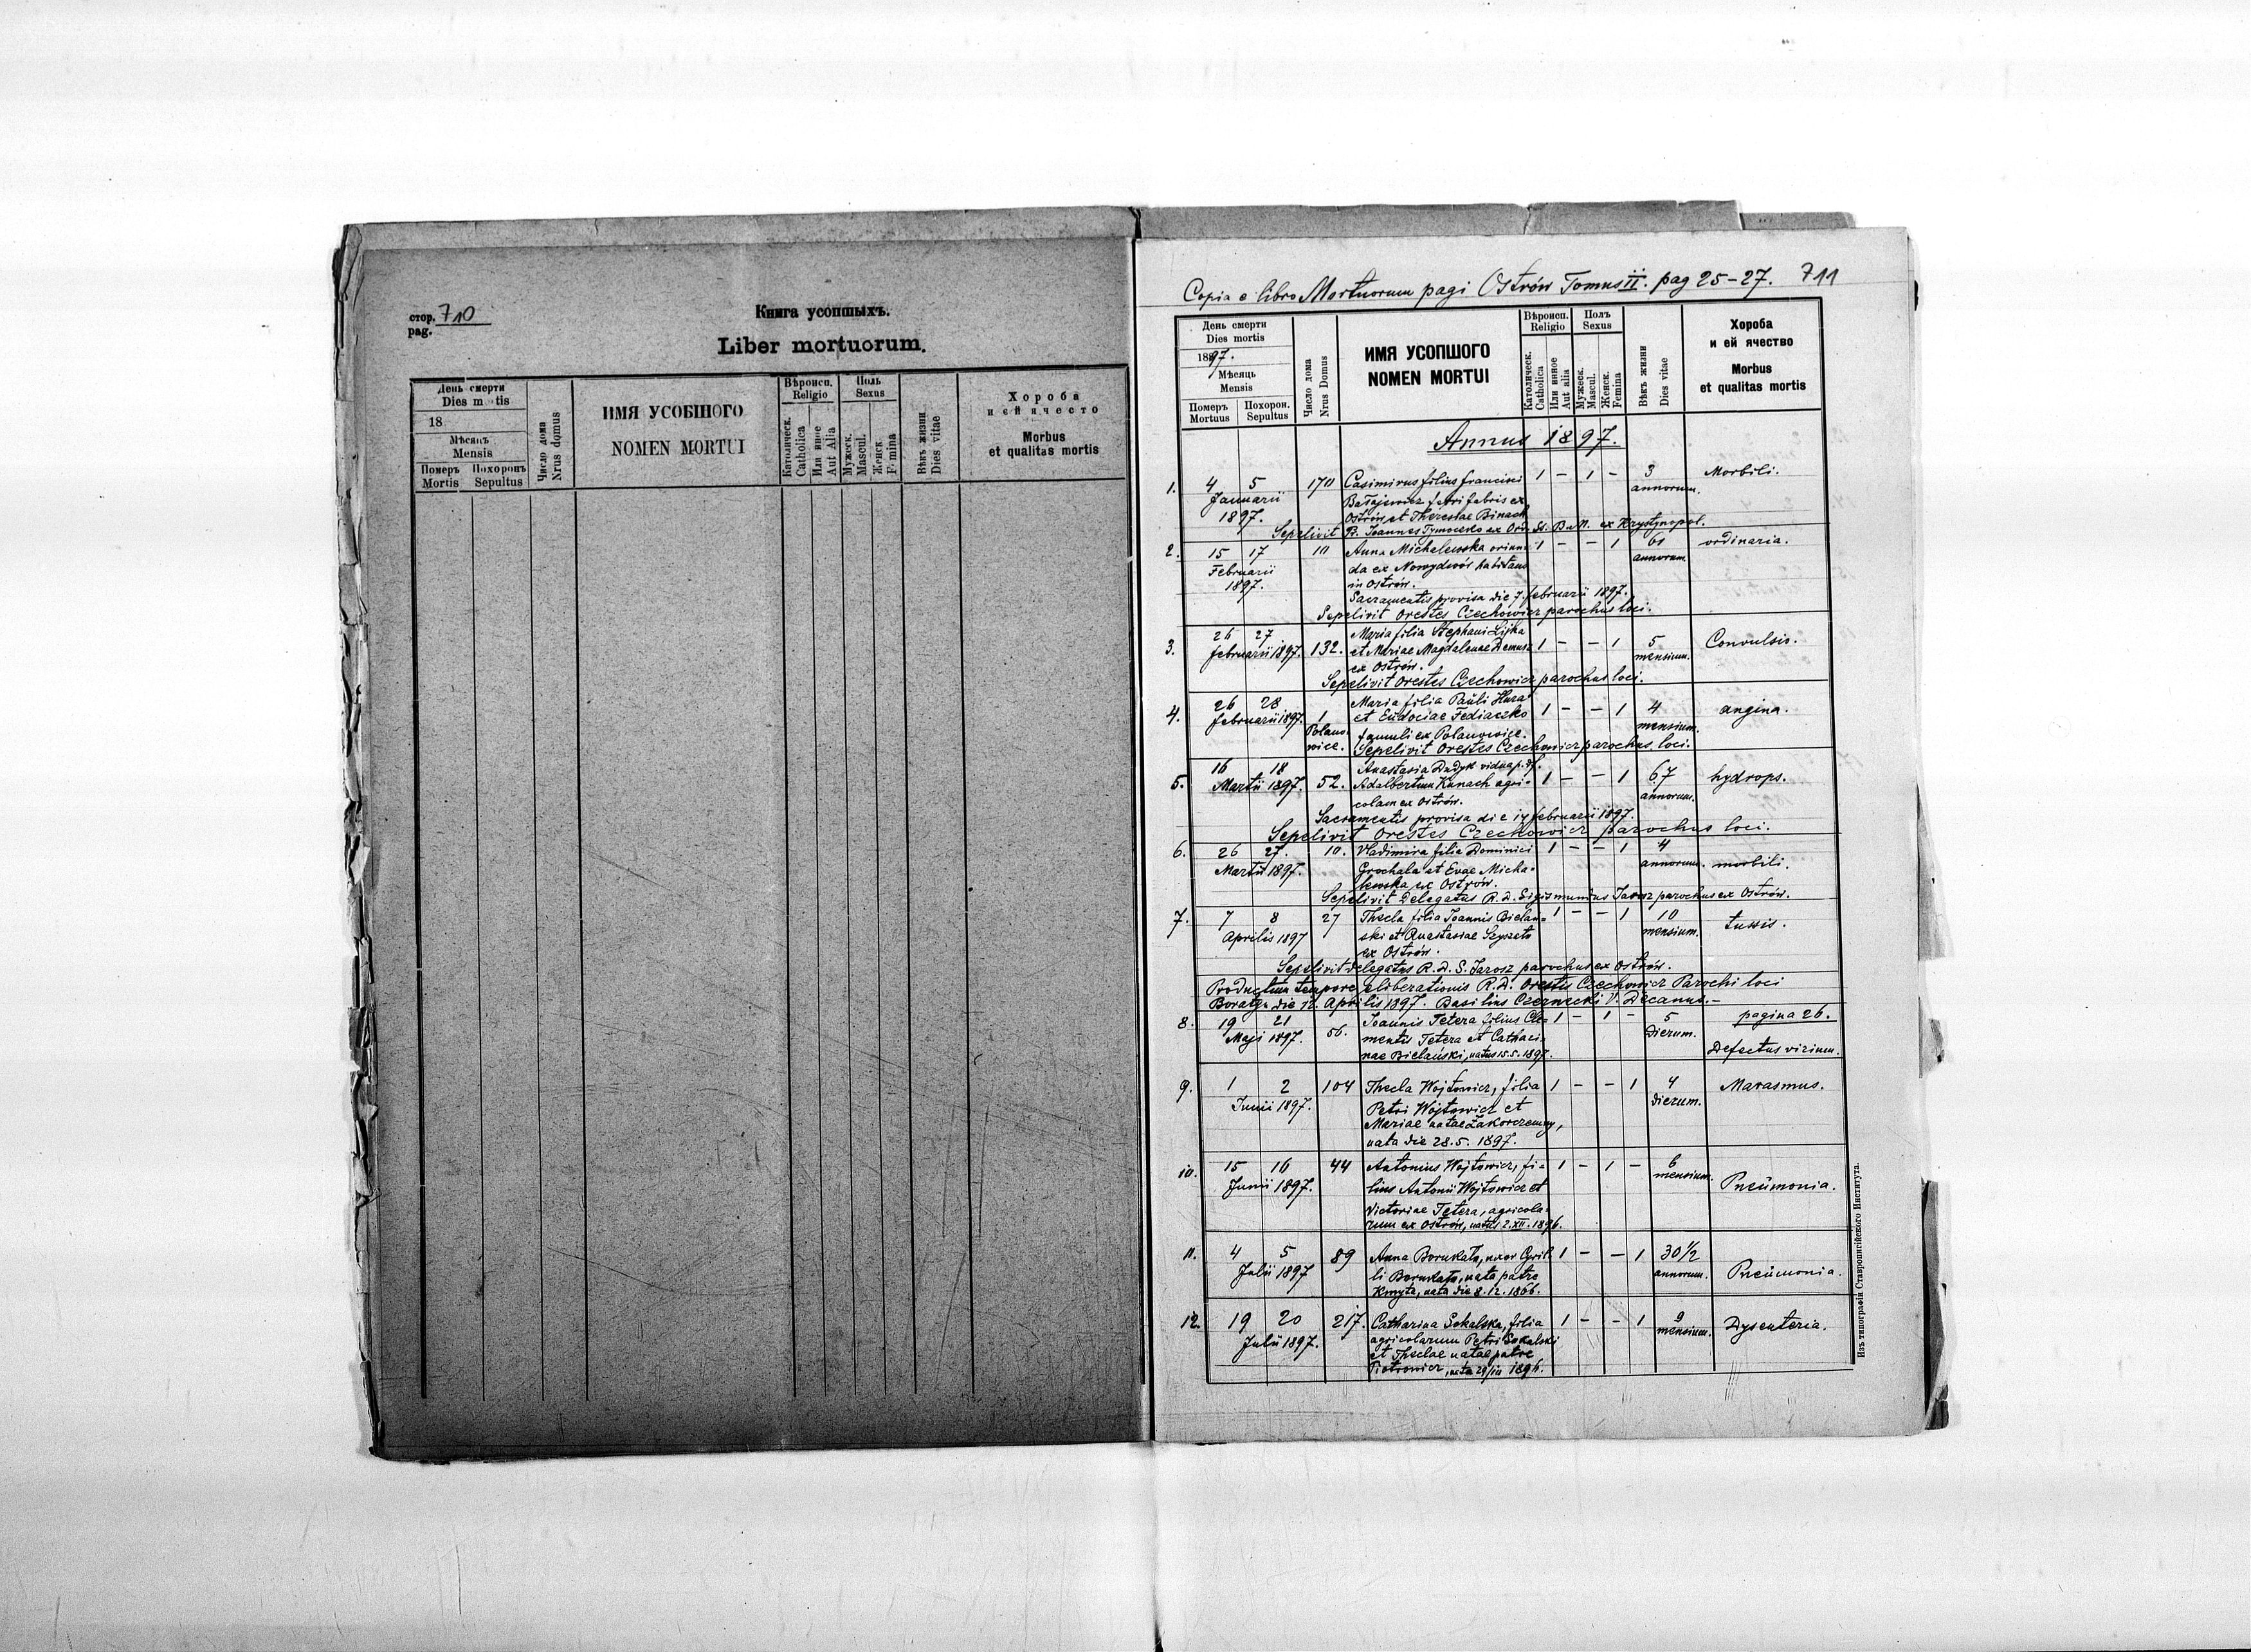 стор. 710
pag.
Книга усопшыхъ.
Liber mortuorum.
День смерти
Dies m tis
18
Мѣсяць
Mensis
Померъ
Mortis
Похоронъ
Sepultus
Число дома
Nrus domus
ИМЯ УСОБШОГО
NOMEN MORTUI
Вѣроисп.
Religio
Католическ.
Catholica
Или иное
Aut Alia
Поль
Sexus
Мужеск.
Mascul.
Женск
F mina
Вѣкъ жизни
Dies vitae
Хороба
и ей ячесто
Morbus
et qualitas mortis
Copia e libro Mortuorum pagi Ostrów Tomus II. pag 25-27. 711
День смерти
Dies mortis
1897.
Мѣсяць
Mensis
Померъ
Mortuus
Похорон.
Sepultus
Число дома
Nrus Domus
ИМЯ УСОПШОГО
NOMEN MORTUI
Вѣроисп.
Religio
Католическ.
Catholica
Или иное
Aut alia
Полъ
Sexus
Мужеск.
Mascul.
Женск.
Femina
Вѣкъ жизни
Dies vitae
Хороба
и ей ячество
Morbus
et qualitas mortis
Annus 1897.
1. 4 5 170 Casimirus filius Francisci 1 - 1 - 3 Morbili.
Januarii annorum.
1897. Ostrów et Theresiae Binach
Sepelivit Joannes Tymoczko ex Ord. St. Bas. ex Krystynopol.
2. 15 17 10 Anna Michalewska oriun- 1 - - 1 61 ordinaria.
Februarii da ex Nowydwór habitans annorum
1897. in Ostrów.
Sacramentis provisa die 7. februarii 1897.
Sepelivit Orestes Czechowicz parochus loci.
3. 26 27 132. Maria filia Stephani Lijka 1 - - 1 5 Convulsio.
februarii 1897. et Mariae Magdalenae Demusz mensium.
ex Ostrów.
Sepelivit Orestes Czechowicz parochus loci.
4. 26 28 1 Maria filia Pauli Hura 1 - - 1 4 angina.
februarii 1897. Polano- et Eudociae Fediaczko mensium.
wice. famuli ex Polanowice.
Sepelivit Orestes Czechowicz parochus loci.
5. 16 18 52. Anastasia Dudyk vidua p. df. 1 - - 1 67 hydrops.
Martii 1897. Adalbertum Kunach agri- annorum.
colam ex Ostrów.
Sacramentis provisa die 14 februarii 1897.
Sepelivit Orestes Czechowicz parochus loci.
6. 26 27. 10. Vladimira filia Dominici 1 - - 1 4 morbili.
Martii 1897. Grochala et Evae Micha- annorum.
lewska ex Ostrów.
Sepelivit Delegatus R. d. Sigismundus Jarosz parochus ex Ostrów.
7. 7 8 27 Thecla filia Joannis Bielan- 1 - - 1 10 tussis.
Aprilis 1897 ski et Anastasiae Szyszeta mensium.
ex Ostrów.
Sepelivit delegatus R. d. S. Jarosz parochus ex Ostrów.
Productum tempore deliberationis R. D. Orestis Czechowicz Parochi loci
Boratyn die 12. Aprilis 1897. Basilius Czernecki V. Decanus.-
8. 19 21 56. Joannis Tetera filius Cle- 1 - 1 - 5 pagina 26.
Maji 1897. mentis Tetera et Cathari- Dierum. Defectus virium.
nae Bielański, natus 15.5.1897.
9. 1 2 104 Thecla Wojtowicz, filia 1 - - 1 4 Marasmus.
Junii 1897. Petri Wojtowicz et dierum.
Mariae natae Zakorczemny,
nata die 28.5.1897.
10. 15 16 44 Antonius Wojtowicz, fi- 1 - 1 - 6 Pneumonia.
Junii 1897. lius Antonii Wojtowicz et mensium.
Victoriae Tetera, agricola-
rum ex Ostrów, natus 2.XII.1896.
11. 4 5 89 Anna Bornkata, uxor Cyril- 1 - - 1 30 1/2 Pneumonia.
Julii 1897 li Bornkata, nata patre annorum.
Kmyta, nata die 8.12.1866.
12. 19 20 217. Catharina Sokalska, filia 1 - - 1 9 Dysenteria.
Julii 1897. agricolarum Petri Sokalski mensium.
et Theclae natae patre
Piotrowicz, nata 1896.
Изъ типографіи Ставропигійского Института.